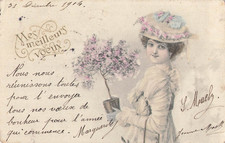 31 Décembre 1904.
Mes
meilleurs
Vœux
Nous nous
réunissons toutes
pour t'envoyer
tous nos vœux de
bonheur pour l'année
qui commence.
Marguerite